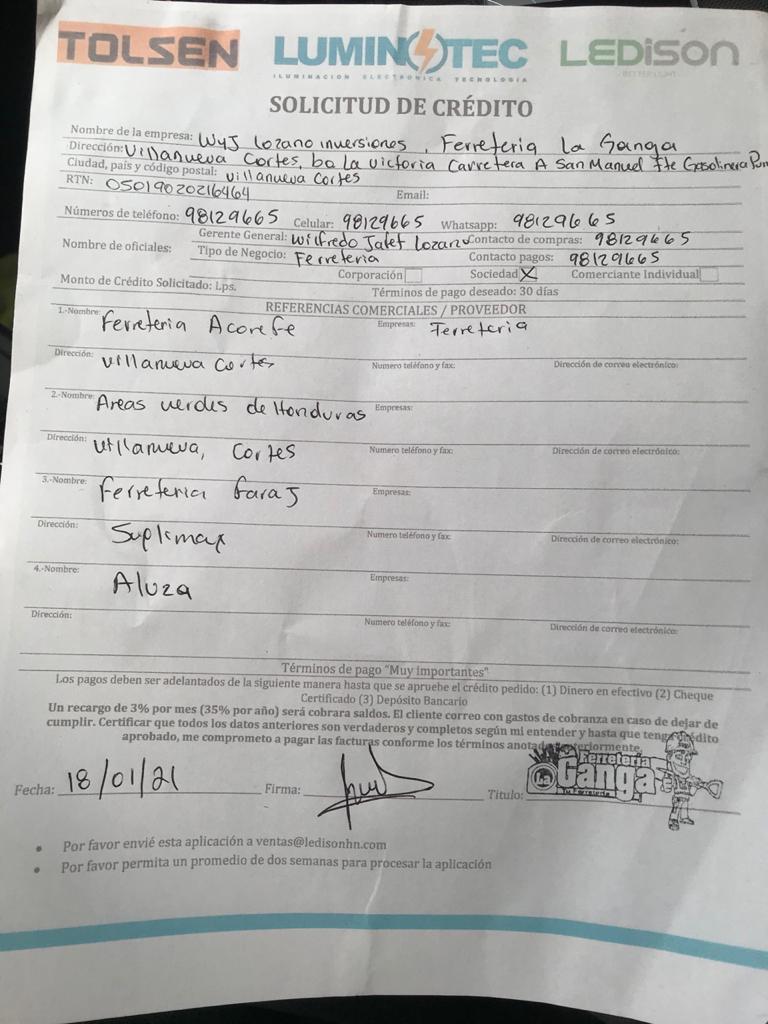 TOLSEN LUMINOTEC LEDISON
ILUMINACION ELECTRONICA TECNOLOGIA
SOLICITUD DE CRÉDITO
Nombre de la empresa: WyJ Lozano inversiones, Ferreteria La Ganga
Dirección: Villanueva Cortes, bo La Victoria Carretera A San Manuel fte Gasolinera Pum
Ciudad, país y código postal: Villanueva Cortes
RTN: 05019020216464 Email:
Números de teléfono: 98129665 Celular: 98129665 Whatsapp: 98129665
Nombre de oficiales: Gerente General: Wilfredo Jafet Lozano Contacto de compras: 98129665
Tipo de Negocio: Ferreteria Contacto pagos: 98129665
Corporación Sociedad X Comerciante Individual
Monto de Crédito Solicitado: Lps. Términos de pago deseado: 30 días
REFERENCIAS COMERCIALES / PROVEEDOR
1.-Nombre: Ferreteria Acorefe Empresas: Ferreteria
Dirección: Villanueva Cortes Numero teléfono y fax: Dirección de correo electrónico:
2.-Nombre: Areas verdes de Honduras Empresas:
Dirección: Villanueva, Cortes Numero teléfono y fax: Dirección de correo electrónico:
3.-Nombre: Ferreteria Faraj Empresas:
Dirección: Suplimax Numero teléfono y fax: Dirección de correo electrónico:
4.-Nombre: Aluza Empresas:
Dirección: Numero teléfono y fax: Dirección de correo electrónico:
Términos de pago "Muy importantes"
Los pagos deben ser adelantados de la siguiente manera hasta que se apruebe el crédito pedido: (1) Dinero en efectivo (2) Cheque
Certificado (3) Depósito Bancario
Un recargo de 3% por mes (35% por año) será cobrara saldos. El cliente correo con gastos de cobranza en caso de dejar de
cumplir. Certificar que todos los datos anteriores son verdaderos y completos según mi entender y hasta que tenga crédito
aprobado, me comprometo a pagar las facturas conforme los términos anotados anteriormente.
Fecha: 18/01/21 Firma: Titulo: Ferreteria
La Ganga
Tu Ferretería
• Por favor envié esta aplicación a ventas@ledisonhn.com
• Por favor permita un promedio de dos semanas para procesar la aplicación